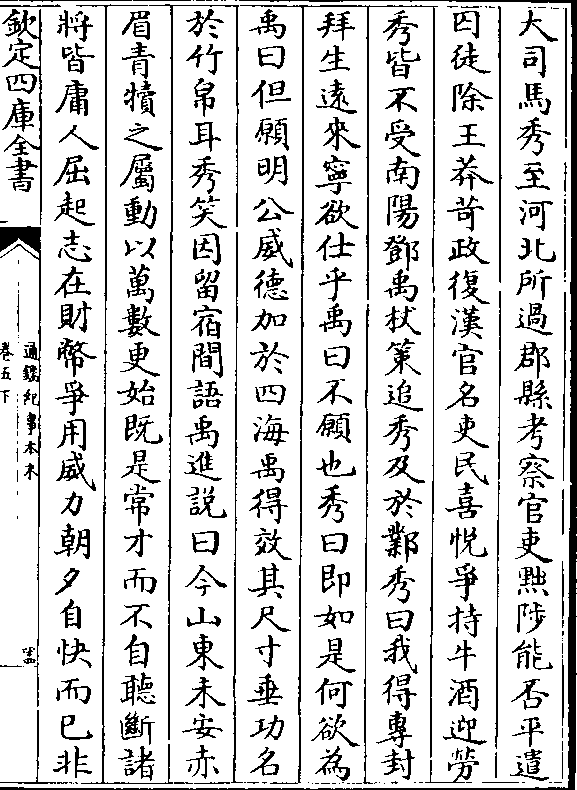 大司馬秀至河北所過郡縣考察官吏黜陟能否平遣
囚徒除王莽苛政復漢官名吏民喜悅爭持牛酒迎勞
秀皆不受南陽鄧禹杖策追秀及於鄴秀曰我得專封
拜生遠來寧欲仕乎禹曰不願也秀曰即如是何欲為
禹曰但願明公威德加於四海禹得效其尺寸垂功名
於竹帛耳秀笑因留宿間語禹進説曰今山東未安赤
眉青犢之屬動以萬數更始既是常才而不自聽斷諸
將皆庸人屈起志在財幣爭用威力朝夕自快而已非
欽定四庫全書
通鑑紀事本末
卷五下